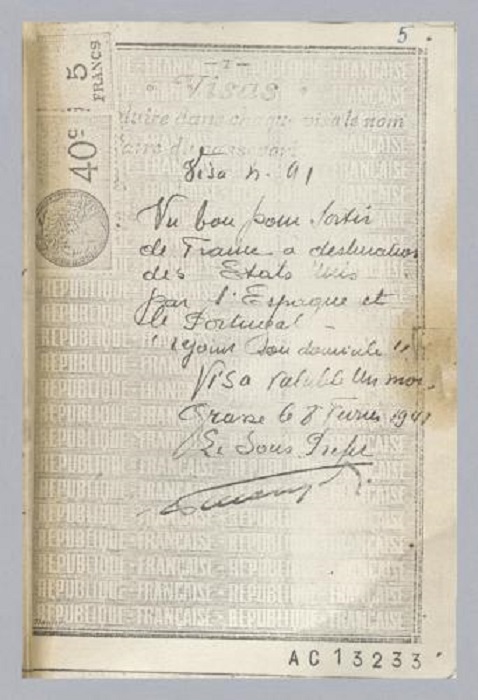 5
5 FRANCS
40c
-7-
Visas
duire dans chaque visa le nom
aire du passeport
Visa n. 91
Vu bon pour sortir
de France a destination
des Etats Unis
par l'Espagne et
le Portugal -
"rejoint son domicile"
Visa valable Un mois
Grasse le 8 Fevrier 1941
Le Sous Prefet
REPUBLIQUE FRANÇAISE
AC 13233